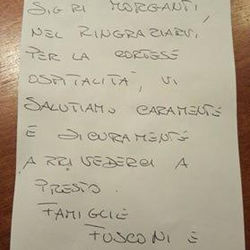 SIG.RI MORGANTI,
NEL RINGRAZIARVI
PER LA CORTESE
OSPITALITA', VI
SALUTIAMO CARAMENTE
E SICURAMENTE
ARRIVEDERCI A
PRESTO.
FAMIGLIE
FUSCONI E